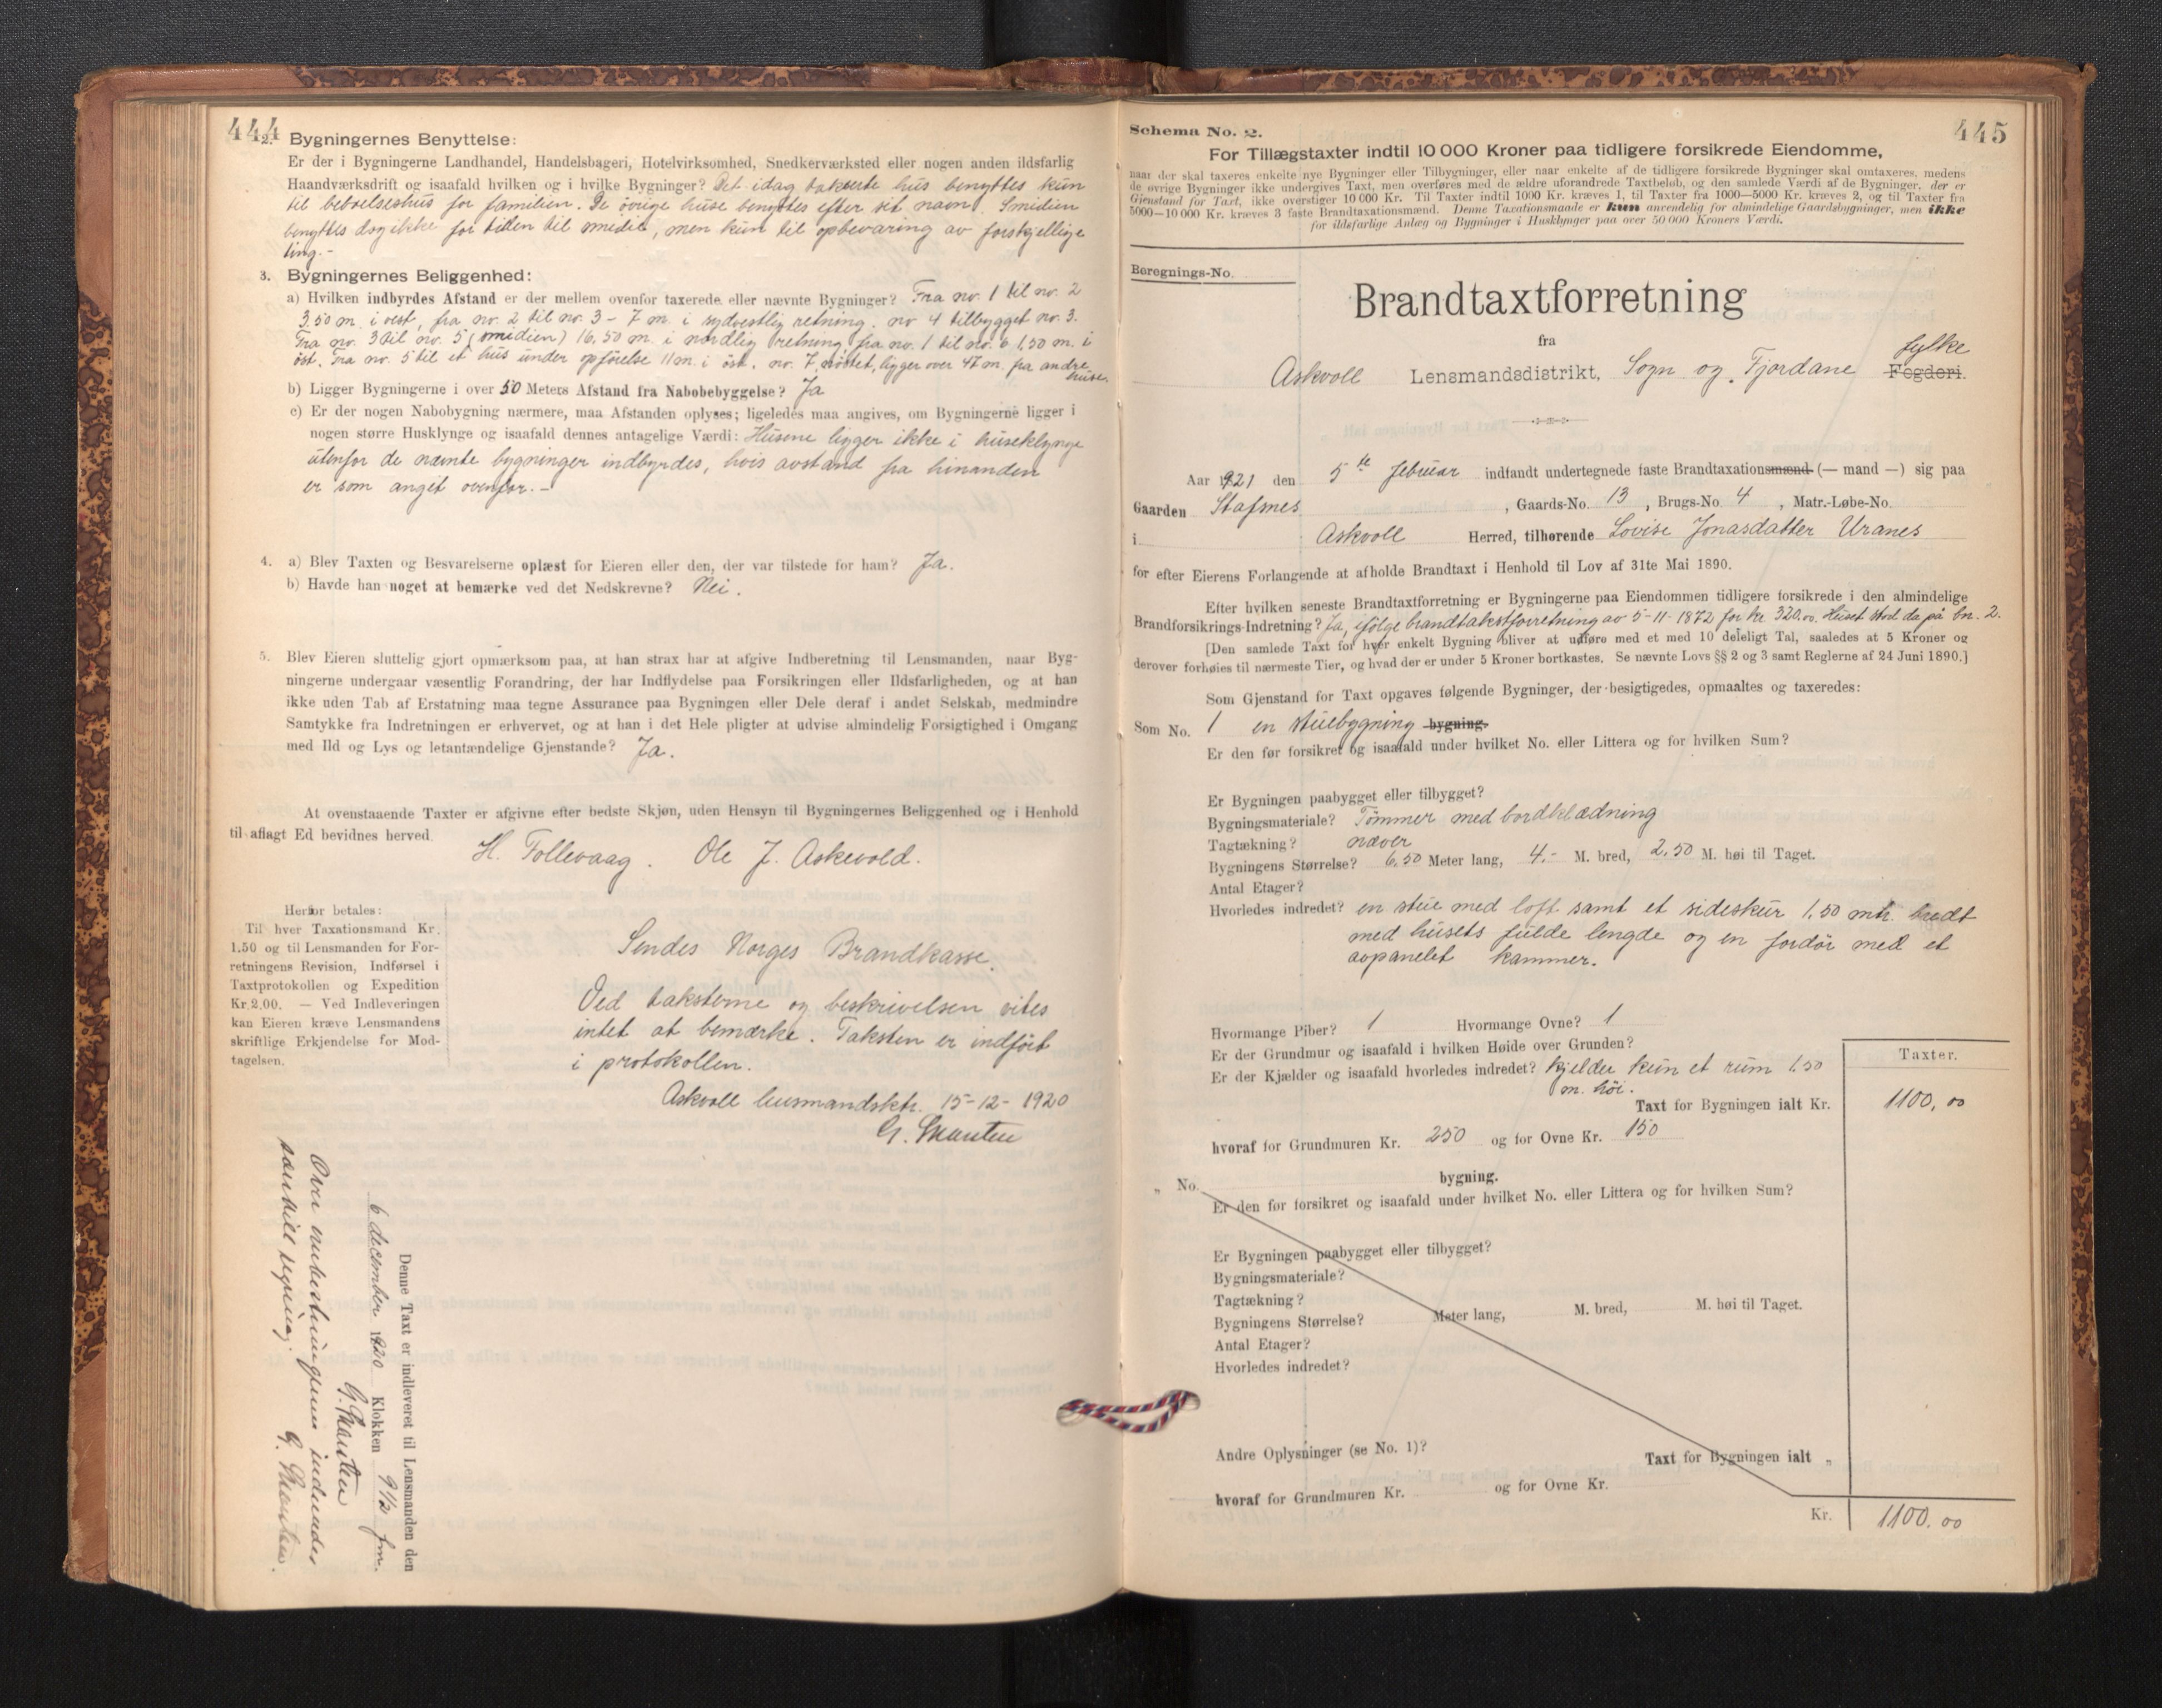 444
2. Bygningernes Benyttelse:
Er der i Bygningerne Landhandel, Handelsbageri, Hotelvirksomhed, Snedkerværksted eller nogen anden ildsfarlig
Haandværksdrift og isaafald hvilken og i hvilke Bygninger? Det idag takserte hus benyttes kun
til beboelseshus for familien. De övrige huse benyttes efter sit navn. Smidien
benyttes dog ikke for tiden til smidie, men kun til opbevaring av forskjellige
ting.-
3. Bygningernes Beliggenhed:
a) Hvilken indbyrdes Afstand er der mellem ovenfor taxerede eller nævnte Bygninger? Fra no. 1 til no. 2
3.50 m. i vest, fra no. 2 til no. 3 - 7 m. i sydvestlig retning. no 4 tilbygget no. 3.
Fra no. 3 til no. 5 (smidien) 16,50 m. i nordlig retning, fra no. 1 til no. 6 1,50 m. i
öst. Fra no. 5 til et hus under opförelse 11 m. i öst. no. 7 nöstet, ligger over 47 m. fra andre
huse.
b) Ligger Bygningerne i over 50 Meters Afstand fra Nabobebyggelse? Ja
c) Er der nogen Nabobygning nærmere, maa Afstanden oplyses; ligeledes maa angives, om Bygningerne ligger i
nogen større Husklynge og isaafald dennes antagelige Værdi: Husene ligger ikke i huseklynge
utenfor de nævnte bygninger indbyrdes, hvis avstand fra hinanden
er som angit ovenfor.-
4. a) Blev Taxten og Besvarelserne oplæst for Eieren eller den, der var tilstede for ham? Ja.
b) Havde han noget at bemærke ved det Nedskrevne? Nei.
5. Blev Eieren sluttelig gjort opmærksom paa, at han strax har at afgive Indberetning til Lensmanden, naar Byg-
ningerne undergaar væsentlig Forandring, der har Indflydelse paa Forsikringen eller Ildsfarligheden, og at han
ikke uden Tab af Erstatning maa tegne Assurance paa Bygningen eller Dele deraf i andet Selskab, medmindre
Samtykke fra Indretningen er erhvervet, og at han i det Hele pligter at udvise almindelig Forsigtighed i Omgang
med Ild og Lys og letantændelige Gjenstande? Ja.
At ovenstaaende Taxter er afgivne efter bedste Skjøn, uden Hensyn til Bygningernes Beliggenhed og i Henhold
til aflagt Ed bevidnes herved.
H. Follevaag. Ole J. Askevold.
Herfor betales:
Til hver Taxationsmand Kr.
1.50 og til Lensmanden for For-
retningens Revision, Indførsel i
Taxtprotokollen og Expedition
Kr. 2.00. — Ved Indleveringen
kan Eieren kræve Lensmandens
skriftlige Erkjendelse for Mod-
tagelsen.
Sendes Norges Brandkasse.
Ved taksterne og beskrivelsen vites
intet at bemærke. Taksten er indfört
i protokollen.
Askvoll lensmandsktr. 15-12-1920
Denne Taxt er indleveret til Lensmanden den
6 december 1920 Klokken 9 1/2 fm.
særskilt tegning.
445
Schema No. 2.
For Tillægstaxter indtil 10 000 Kroner paa tidligere forsikrede Eiendomme,
naar der skal taxeres enkelte nye Bygninger eller Tilbygninger, eller naar enkelte af de tidligere forsikrede Bygninger skal omtaxeres, medens
de øvrige Bygninger ikke undergives Taxt, men overføres med de ældre uforandrede Taxtbeløb, og den samlede Værdi af de Bygninger, der er
Gjenstand for Taxt, ikke overstiger 10 000 Kr. Til Taxter indtil 1000 Kr. kræves 1, til Taxter fra 1000—5000 Kr. kræves 2, og til Taxter fra
5000—10 000 Kr. kræves 3 faste Brandtaxationsmænd. Denne Taxationsmaade er kun anvendelig for almindelige Gaardsbygninger, men ikke
for ildsfarlige Anlæg og Bygninger i Husklynger paa over 50 000 Kroners Værdi.
Beregnings-No.
Brandtaxtforretning
fra
fylke
Askvoll Lensmandsdistrikt, Sogn og Fjordane Fogderi.
Aar 1921 den 5te februar indfandt undertegnede faste Brandtaxationsmænd (— mand —) sig paa
Gaarden Stafnes, Gaards-No. 13, Brugs-No. 4, Matr.-Løbe-No.
i Askvoll Herred, tilhørende Lovise Jonasdatter Uranes
for efter Eierens Forlangende at afholde Brandtaxt i Henhold til Lov af 31te Mai 1890.
Efter hvilken seneste Brandtaxtforretning er Bygningerne paa Eiendommen tidligere forsikrede i den almindelige
Brandforsikrings-Indretning? Ja, ifölge brandtakstforretning av 5-11-1872 for kr. 320.00. Huset stod da på bn. 2.
[Den samlede Taxt for hver enkelt Bygning bliver at udføre med et med 10 deleligt Tal, saaledes at 5 Kroner og
derover forhøies til nærmeste Tier, og hvad der er under 5 Kroner bortkastes. Se nævnte Lovs §§ 2 og 3 samt Reglerne af 24 Juni 1890.]
Som Gjenstand for Taxt opgaves følgende Bygninger, der besigtigedes, opmaaltes og taxeredes:
Som No. 1 en stuebygning bygning.
Er den før forsikret og isaafald under hvilket No. eller Littera og for hvilken Sum?
Er Bygningen paabygget eller tilbygget?
Bygningsmateriale? Tömmer med bordklædning
Tagtækning? næver
Bygningens Størrelse? 6,50 Meter lang, 4.- M. bred, 2,50 M. høi til Taget.
Antal Etager?
Hvorledes indredet? en stue med loft samt et sideskur 1,50 mtr. bredt
med husets fulde lengde og en fordör med et
avpanelet kammer.
Hvormange Piber? 1 Hvormange Ovne? 1
Er der Grundmur og isaafald i hvilken Høide over Grunden?
Er der Kjælder og isaafald hvorledes indredet? kjelder kun et rum 1,50
m. höi.
Taxter.
Taxt for Bygningen ialt Kr. 1100,00
hvoraf for Grundmuren Kr. 250 og for Ovne Kr. 150
„ No. bygning.
Er den før forsikret og isaafald under hvilket No. eller Littera og for hvilken Sum?
Er Bygningen paabygget eller tilbygget?
Bygningsmateriale?
Tagtækning?
Bygningens Størrelse? Meter lang, M. bred, M. høi til Taget.
Antal Etager?
Hvorledes indredet?
Andre Oplysninger (se No. 1)?
Taxt for Bygningen ialt „
hvoraf for Grundmuren Kr. og for Ovne Kr.
Kr. 1100.00